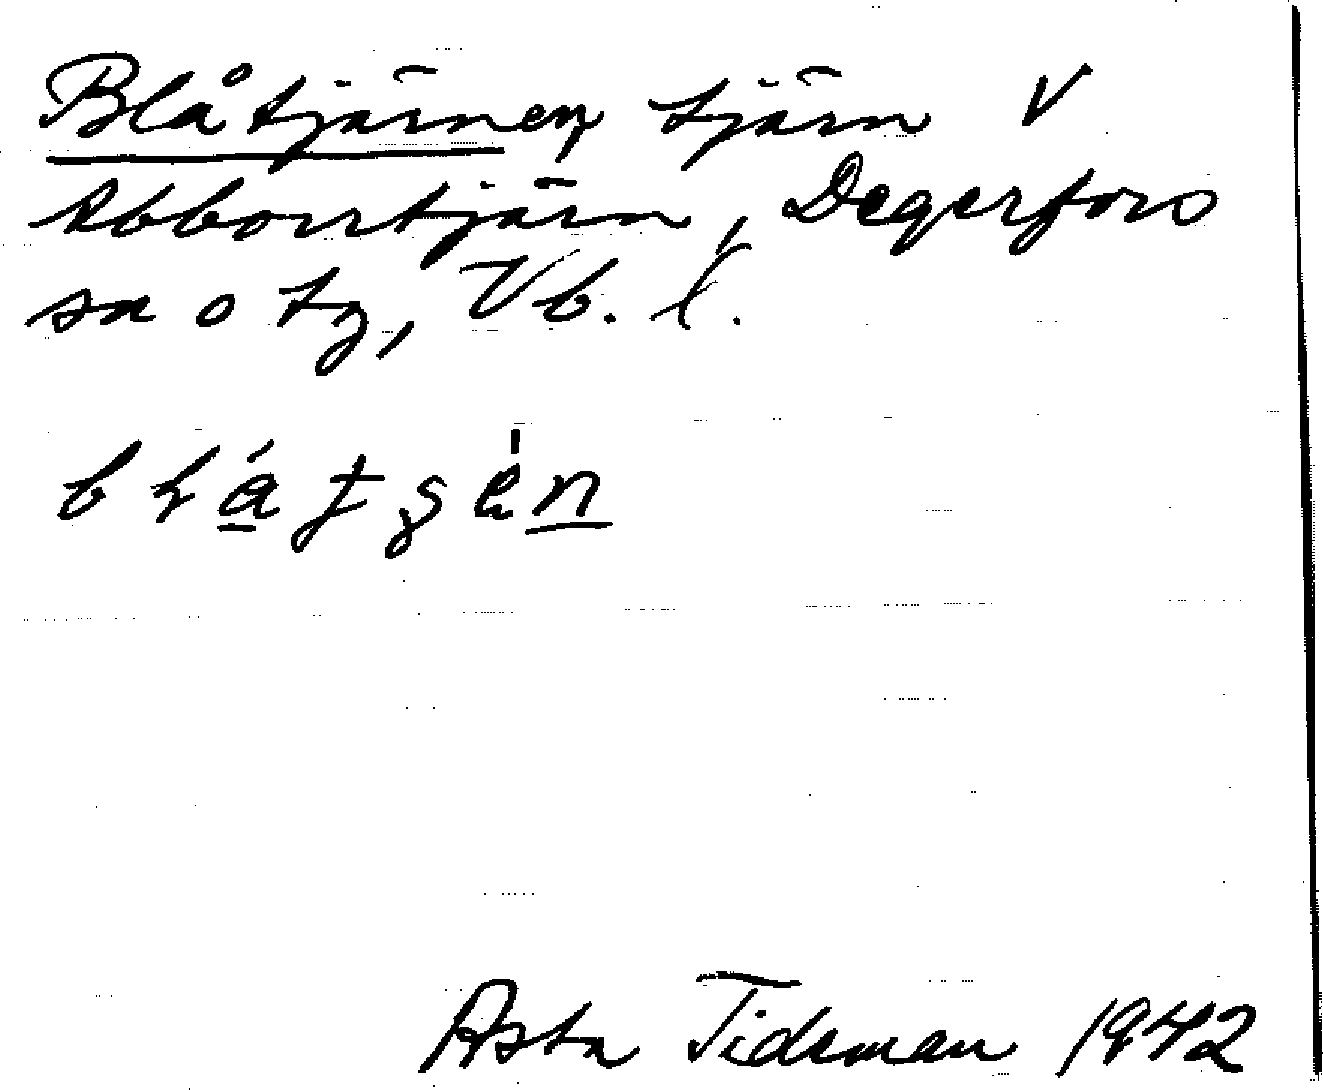 Blåtjärnen tjärn V
Abborrtjärn, Degerfors
sn o tg, Vb. l.
Asta Tideman 1942